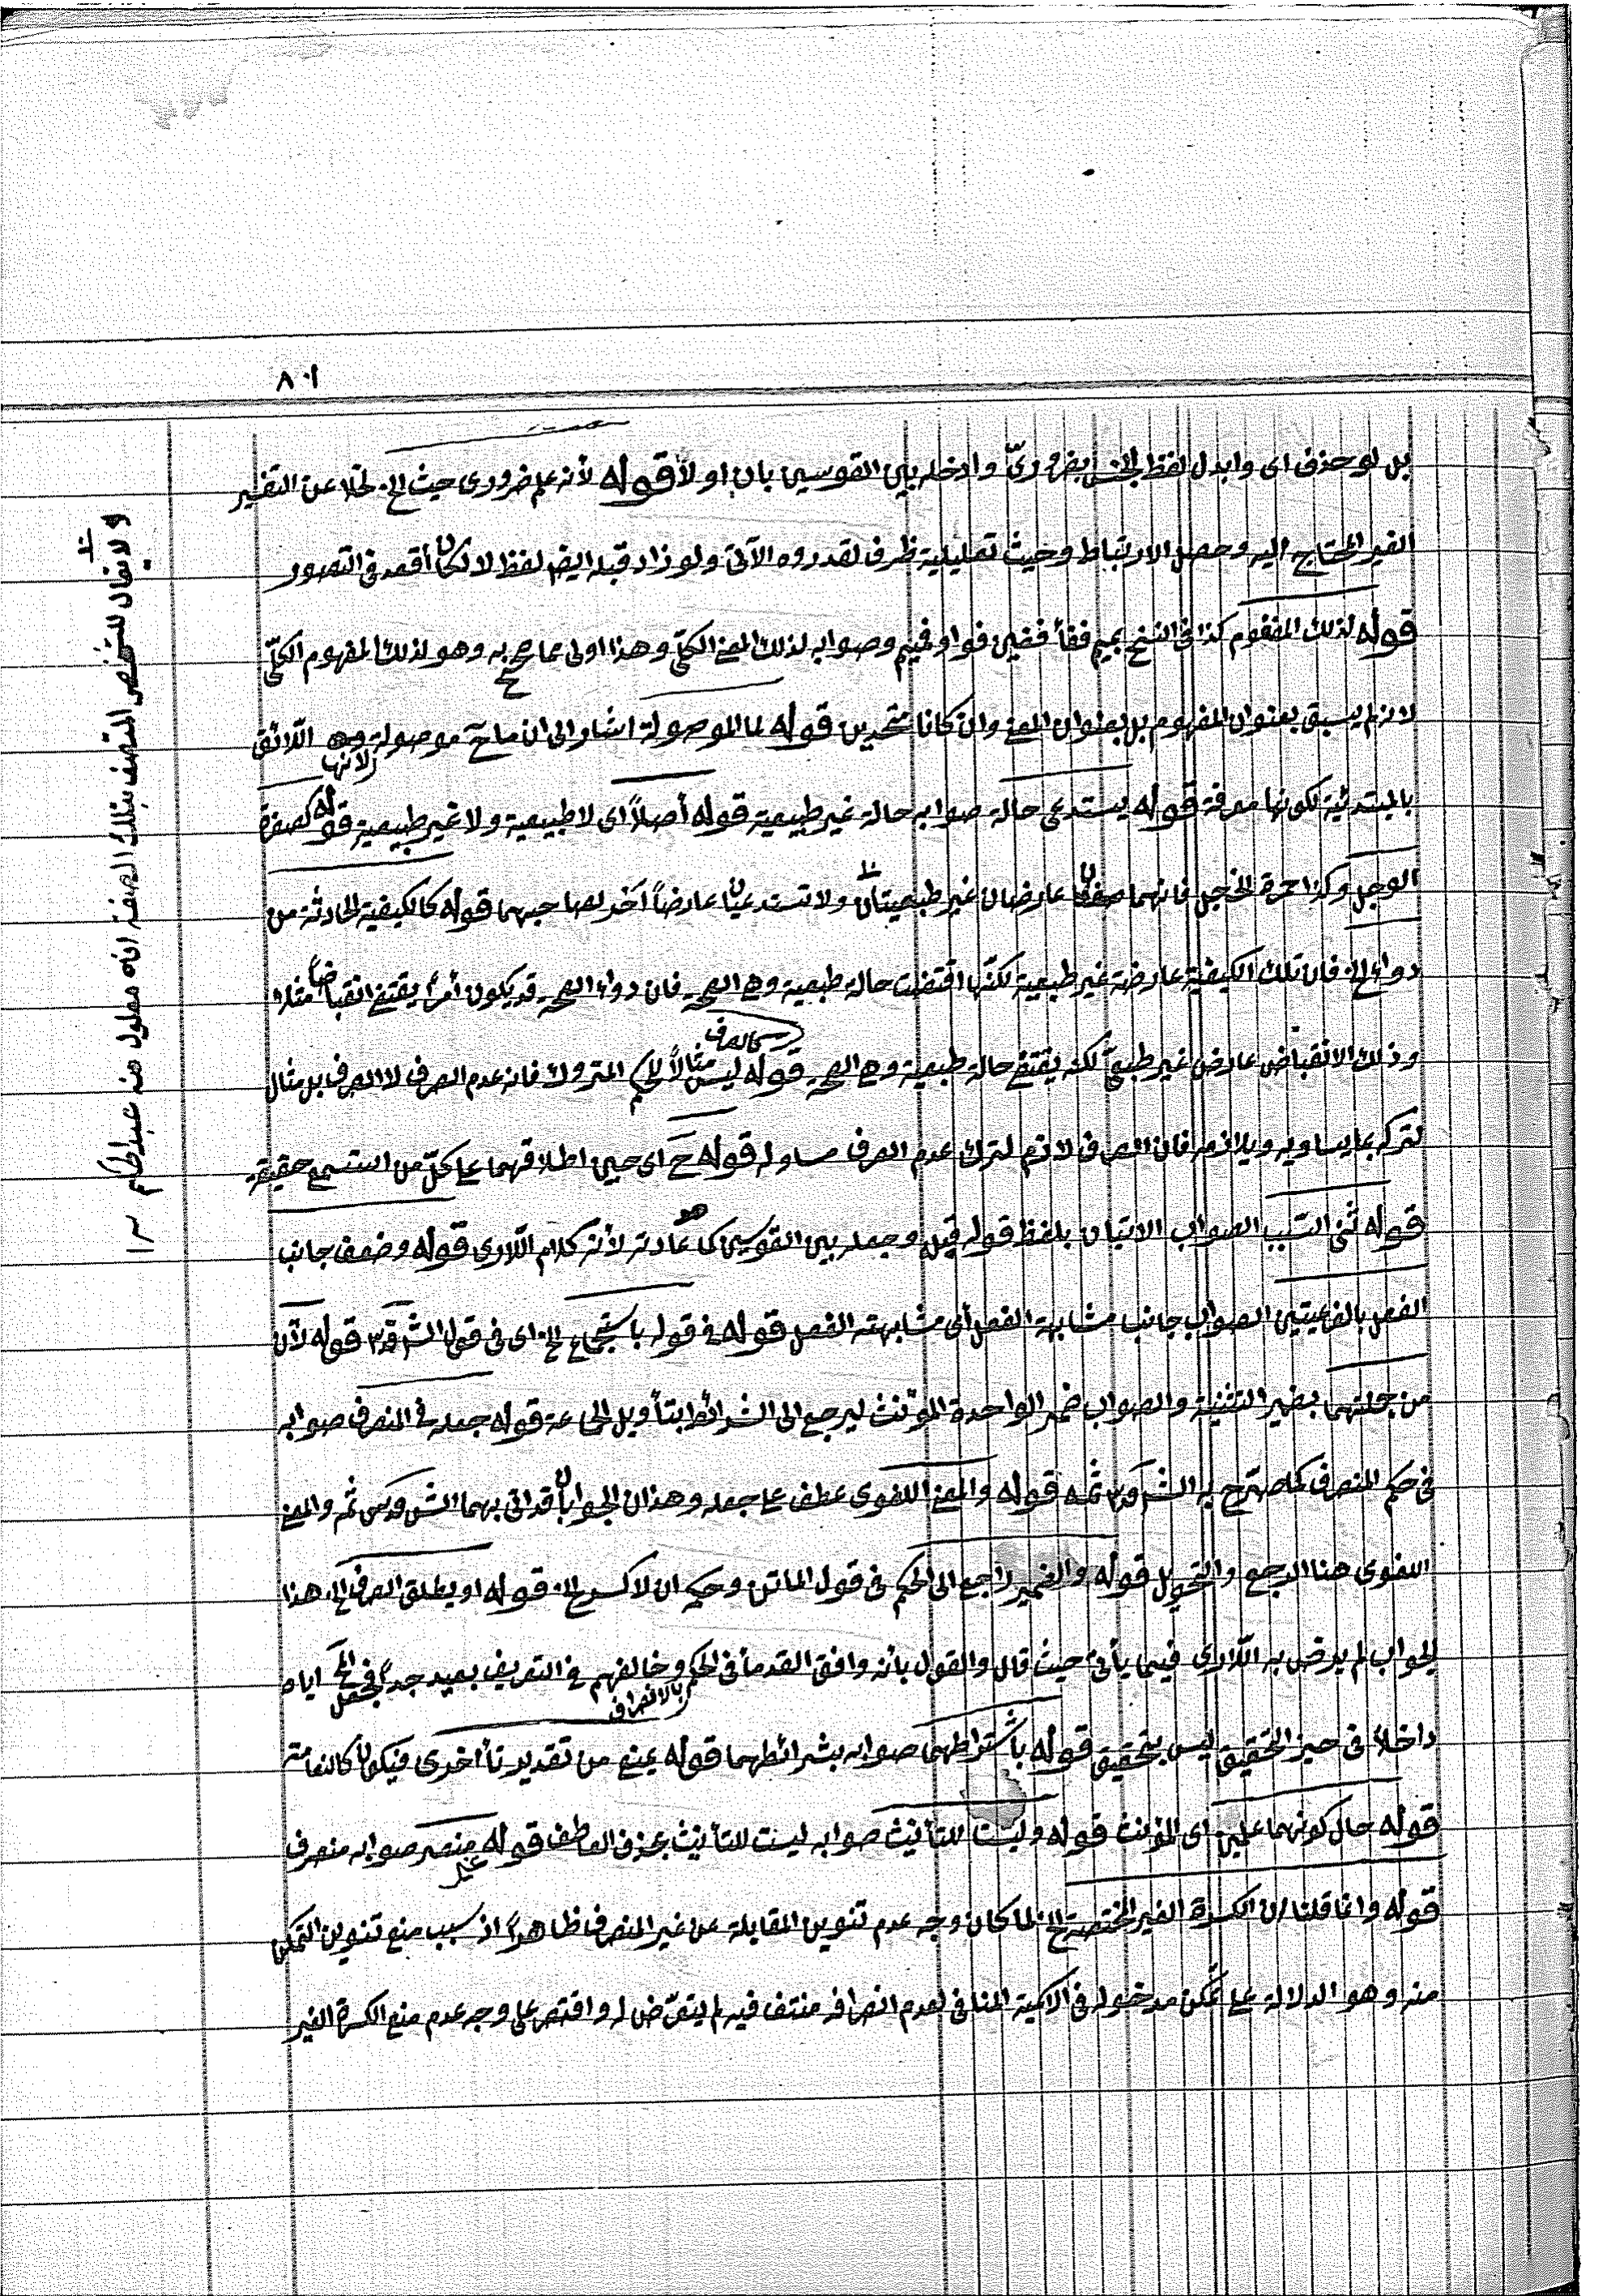 ٨٠١
بل لو حذف اى وابدل لفظ الجنس بضرورىّ وادخله بين القوسين بان اولاً قوله لأنه علم ضرورى حيث الخ تخلا عن التفسير
الغير المحتاج اليه وحصل الارتباط وحيث تعليلية ظرف لقدروه الآتى ولو زاد قبله ايضا لفظ لا لكان أقعد فى التصور
قوله لذلك المفغوم كذا فى النسخ بميم ففأ فغين فواو فميم وصوابه لذلك المعنى الكلّى وهذا اولى مما صحح به وهو لذلك المفهوم الكلّى
لانه لم يسبق بعنوان المفهوم بل بعنوان المعنى وان كانا متحدين قوله لما الموصولة اشار الى ان ما ح موصولة لانها وهى اللائق
بالمبتدئية لكونها معرفة قوله يستدعى حالة صوابه حالة غير طبيعية قوله أصلاً اى لا طبيعية ولا غير طبيعية قوله كصفرة
الوجل وكذا حمرة الخجل فانهما صفتان عارضان غير طبيعيتان ولا تستدعيان عارضاً آخر لصاحبهما قوله كالكيفية الحادثة من
دواء الخ فان تلك الكيفية عارضة غير طبيعية لكنّها اقتضت حالة طبيعية وهى الصحة فان دواء الصحة قد يكون أمراً يقتضى انقباضاً مثلا
وذلك الانقباض عارض غير طبيعىّ لكنه يقتضى حالة طبيعية وهى الصحة قوله ليس مثالاً للحكم المتروك فانه عدم الصرف لا الصرف بل مثال
لتركه بما يساويه ويلازمه فان الصرف لازم لترك عدم الصرف مساو له قوله ح اى حين اطلاقهما على كلّ من التسع حقيقة
قوله ثنى السبب الصواب الاتيان بلفظ قوله قبله وجعله بين القوسين كما هو عادته لأنه كلام اللارى قوله وضعف جانب
الفعل بالفرعيتين الصواب جانب مشابهة الفعل أى مشابهته الفعل قوله فى قوله باستجماع الخ اى فى قول الش قوله لأن
من جملتهما بضمير التثنية والصواب ضمير الواحدة المؤنث ليرجع الى الشرائط بتأويل الجماعة قوله جعله فى المنصرف صوابه
فى حكم المنصرف كما صرّح به الش ثمه قوله والمعنى اللغوى عطف على جعله وهذان الجوابان قد اتى بهما الش ثم والمعنى
اللغوى هنا الرجع والتحويل قوله والضمير راجع الى الحكم فى قول الماتن وحكمه ان لا كسر الخ قوله او يطلق الصرف الخ هذا
الجواب لم يرض به اللارى فيما يأتى حيث قال والقول بأنه وافق القدماء فى الحكم بالانصراف وخالفهم فى التعريف بعيد جداً فجعل المح اياه
داخلاً فى حيز التحقيق ليس بتحقيق قوله باشتراطهما صوابه بشرائطهما قوله يمنع من تقدير تأ أخرى فيكون كالنعامة
قوله حال كونهما علمين اى المؤنث قوله وليست للتأنيث صوابه ليست للتأنيث بحذف العاطف قوله غير منصر صوابه منصرف
قوله وانما قلنا ان الكسرة الغير المختصة الخ لما كان وجه عدم تنوين المقابلة عن غير المنصرف ظاهراً اذ سبب منع تنوين التمكن
منه وهو الدلالة على تمكن مدخوله فى الاسمية المنافى لعدم انصرافه منتف فيه لم يتعرّض له واقتصر على وجه عدم منع الكسرة الغير
ولا يقال للشخص المتصف بتلك الصفة انه معلول منه